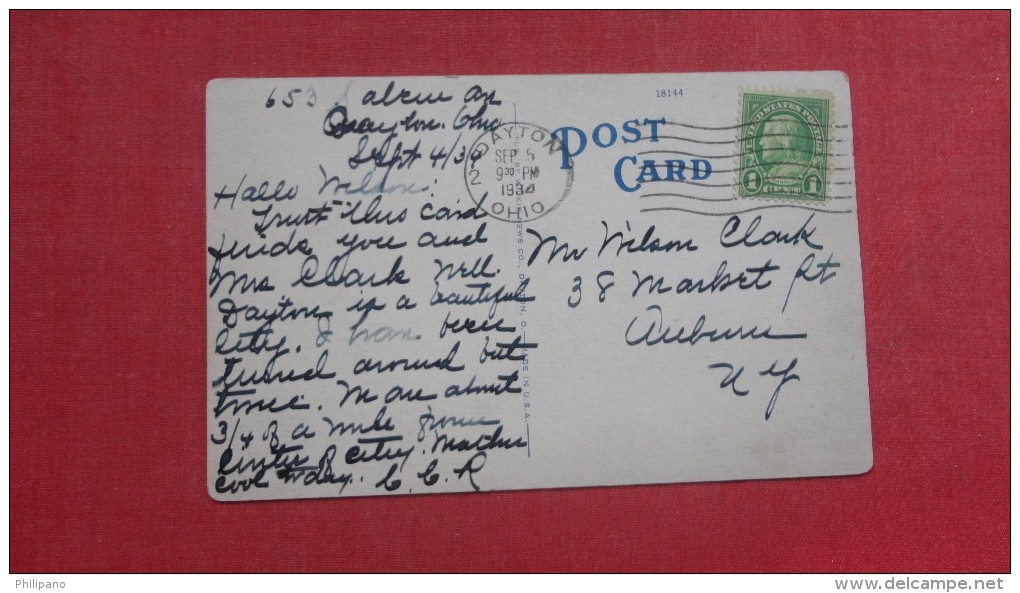 653 Salem Av
Dayton. Ohio
Sept 4/34
Hallo Wilson:
Trust this card
finds you and
Mrs Clark Well.
Dayton is a beautiful
City. I have been
turned around but
twice. We are about
3/4 of a mile from
Center of City. Wather
cool today. C. C. R
DAYTON
SEP 5
9 30 PM
1934
2
OHIO
NEWS CO., DAYTON, O. MADE IN U.S.A.
18144
POST
CARD
UNITED STATES POSTAGE
1 CENT 1
Mr Wilson Clark
38 Market St
Auburn
N Y
Philipano
www.delcampe.net